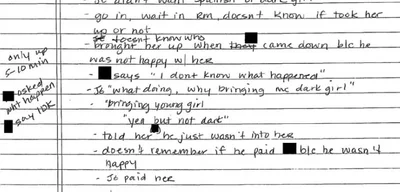 go in, wait in Rm, doesn't know if took her
up or not
doesnt know who
brought her up when came down b/c he
was not happy w/ her
only up
5-10 min
- says "I dont know what happened"
asked
wht happen
say IDK
- Jo "what doing, why bringing me dark girl"
- "bringing young girl
"yea but not dark"
- told her he just wasn't into her
- doesn't remember if he paid b/c he wasn't
happy
- Jo paid her